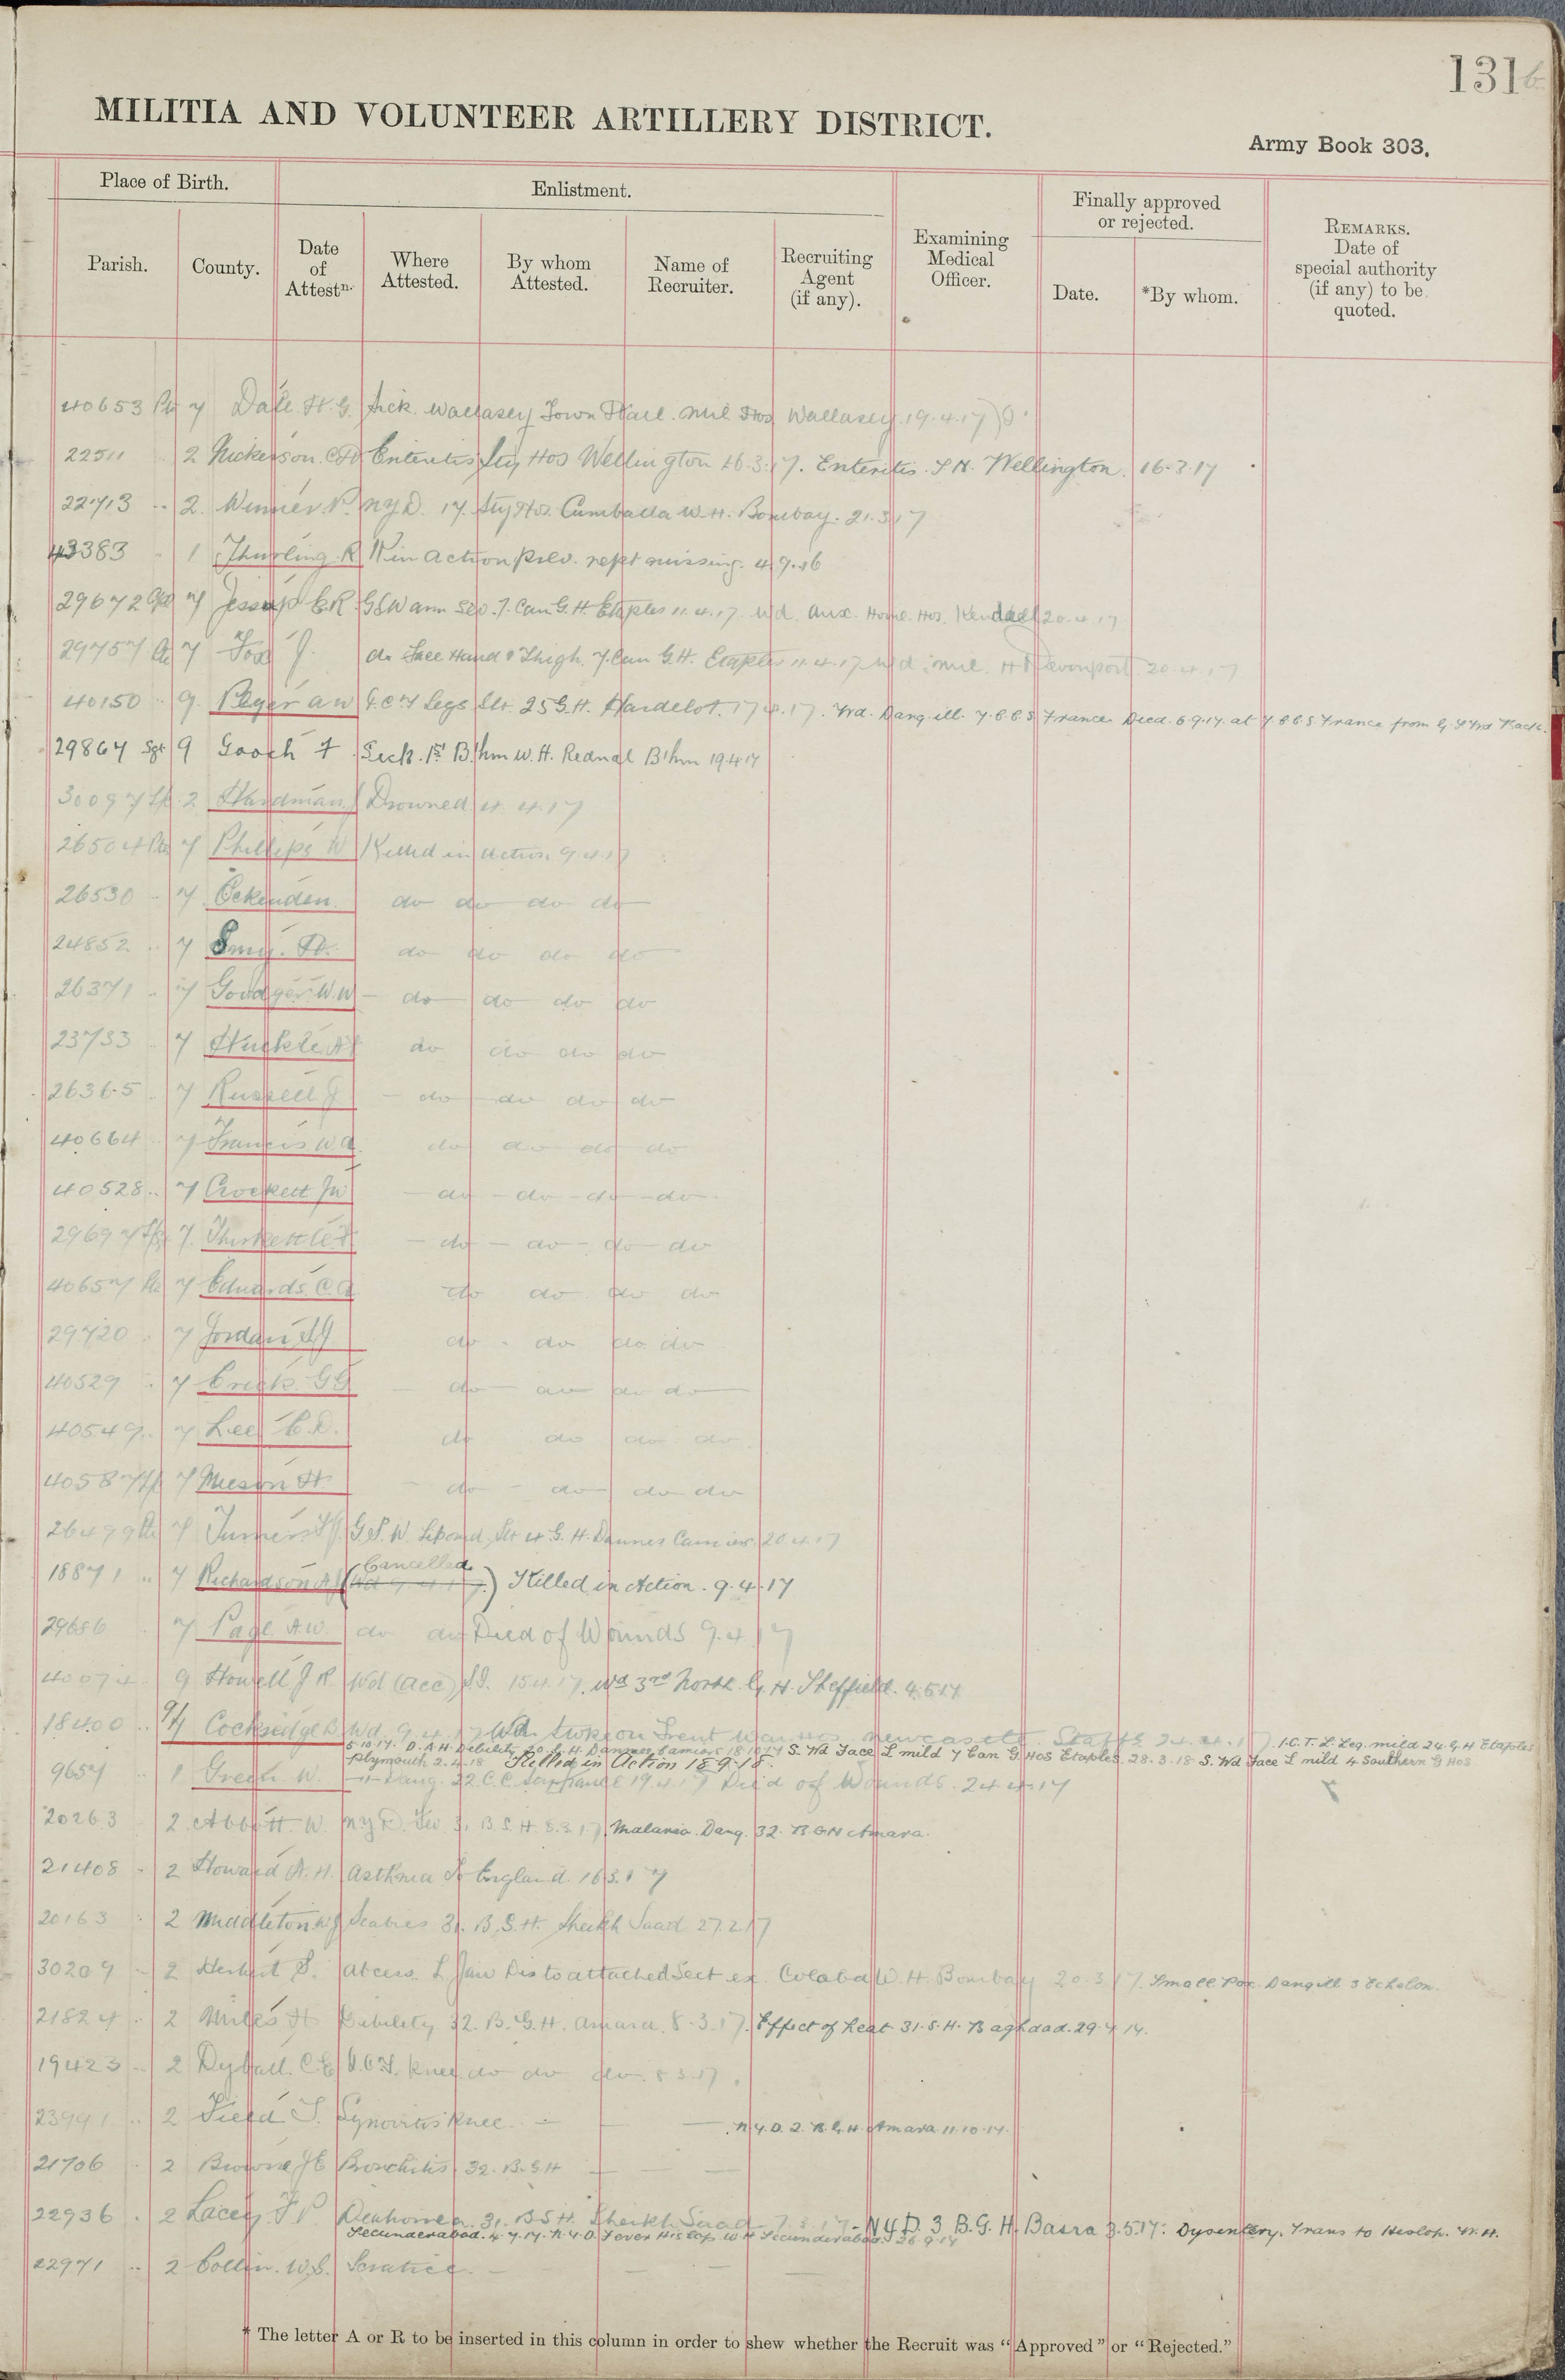 131b
MILITIA AND VOLUNTEER ARTILLERY DISTRICT.
Army Book 303.
Place of Birth.
Enlistment.
Examining Medical Officer.
Finally approved or rejected.
REMARKS. Date of special authority (if any) to be quoted.
Parish.
County.
Date of Attestn.
Where Attested.
By whom Attested.
Name of Recruiter.
Recruiting Agent (if any).
Date.
*By whom.
40653 Pte 7 Dale. H.G. Sick. Wallasey Town Hall. Mil Hos Wallasey 19.4.17
22511 2 Nickerson. Enteritis Sty Hos Wellington 16.3.17. Enteritis. S.H. Wellington. 16.3.17
22713 .. 2. Winner. P. NYD. 17. Sty Hos. Cumballa W.H. Bombay. 21.3.17
43383 1 Thurling. R K in Action prev. rept missing. 4.9.16
29672 Cpl 7 Jessup E.R. GSW arm sev. 7. Can G.H. Etaples 11.4.17. Wd. Aux. Home. Hos. Kendal 20.4.17
29757 7 Fox J. do Face Hand & Thigh. 7. Can G.H. Etaples 11.4.17 Wd. Mil. H Devonport. 20.4.17
40150 .. 9. A W I.C.T Legs Slt. 25 G.H. Hardelot. 17.4.17. Wd. Dang. ill. 7.C.C.S France Died 6.9.17. at 7 C.C.S France from G S Wd Back.
29864 Sgt 9 Gooch F Sick. 1st B'hm W.H. Rednal B'hm 19.4.17
30097 2 Hardman J Drowned 4.4.17
26504 Pte 7 Phillips W Killed in Action 9.4.17
26530 .. 7 Eckenden. do do do do
24852 .. 7 Smy. H. do do do do
26371 .. 7 Goodger W.W do do do do
23733 .. 7 Huckle A do do do do
26365 .. 7 Russell J do do do do
40664 .. 7 Francis W A do do do do
40528 .. 7 Crockett J W do do do do
29697 7. Thirkettle do do do do
40657 7 Edwards. C.A do do do do
29720 . 7 Jordan do do do do
40529 .. 7 Crick. GG do do do do
40549 .. 7 Lee C.D. do do do do
40587 7 Meeson H do do do do
26499 Pte 7 Turner G.S.W. Slt 4 G.H. Dannes Camiers 20.4.17
18871 .. 7 Richardson A (Wd 9.4.17.) Cancelled Killed in Action. 9.4.17
29686 7 Page A.W. do do Died of Wounds 9.4.17
40074 9 Howell J R Wd (acc) S.I. 15.4.17. Wd 3rd North. G. H. Sheffield. 4.5.17
18400 .. 9/7 Cocksedge B. Wd. 9.4.17 Wd. Stoke on Trent War Hos. Newcastle. Staffs 24.4.17. I.C.T. L. Leg. mild 24. G.H Etaples
5.10.17. D.A.H. Debility 20 G.H. Dannes Camiers 18.10.17 S. Wd Face L mild 7 Can G Hos Etaples. 28.3.18. S. Wd Face L mild 4 Southern G Hos
Plymouth 2.4.18 Killed in Action 18.9.18.
9657 .. 1 Green. W. Dang. 22.C.C.S France 19.4.17 Died of Wounds. 24.4.17
20263 2 Abbott. W. NYD. Fev. 31. B.S.H. 8.3.17. Malaria. Dang. 32. B G H Amara.
21408 2 Howard A.H. Asthma To England. 16.3.17
20163 2 Middleton Scabies 31. B.S.H. Sheikh Saad 27.2.17
30209 2 Herbert S. Abcess. L Jaw Colaba W. H. Bombay 20.3.17. Small Pox. Dang ill 3 Echelon.
21824 .. 2 Miles H Debility 32. B.G.H. Amara. 8.3.17. Effect of heat 31. S.H. Baghdad. 29.7.17.
19423 .. 2 Dyball. C.E I.C.T. Knee. do do do. 8.3.17.
23991 .. 2 Field S. Synovitis Knee. N.Y.D. 2. B.G.H. Amara 11.10.17.
21706 2 Browne J E Bronchitis 32. B.G.H
22936 . 2 Lacey F P. Diarhoea. 31. B S H. Sheikh Saad 7.3.17. N Y D. 3 B.G.H. Basra 3.5.17: Dysentery. Trans to Heslop. W.H.
Secunderabad. 4.7.17. N.Y.D. Fever W H Secunderabad. 26.9.17
22971 .. 2 Collin. W.S. Sciatica.
* The letter A or R to be inserted in this column in order to shew whether the Recruit was "Approved" or "Rejected."